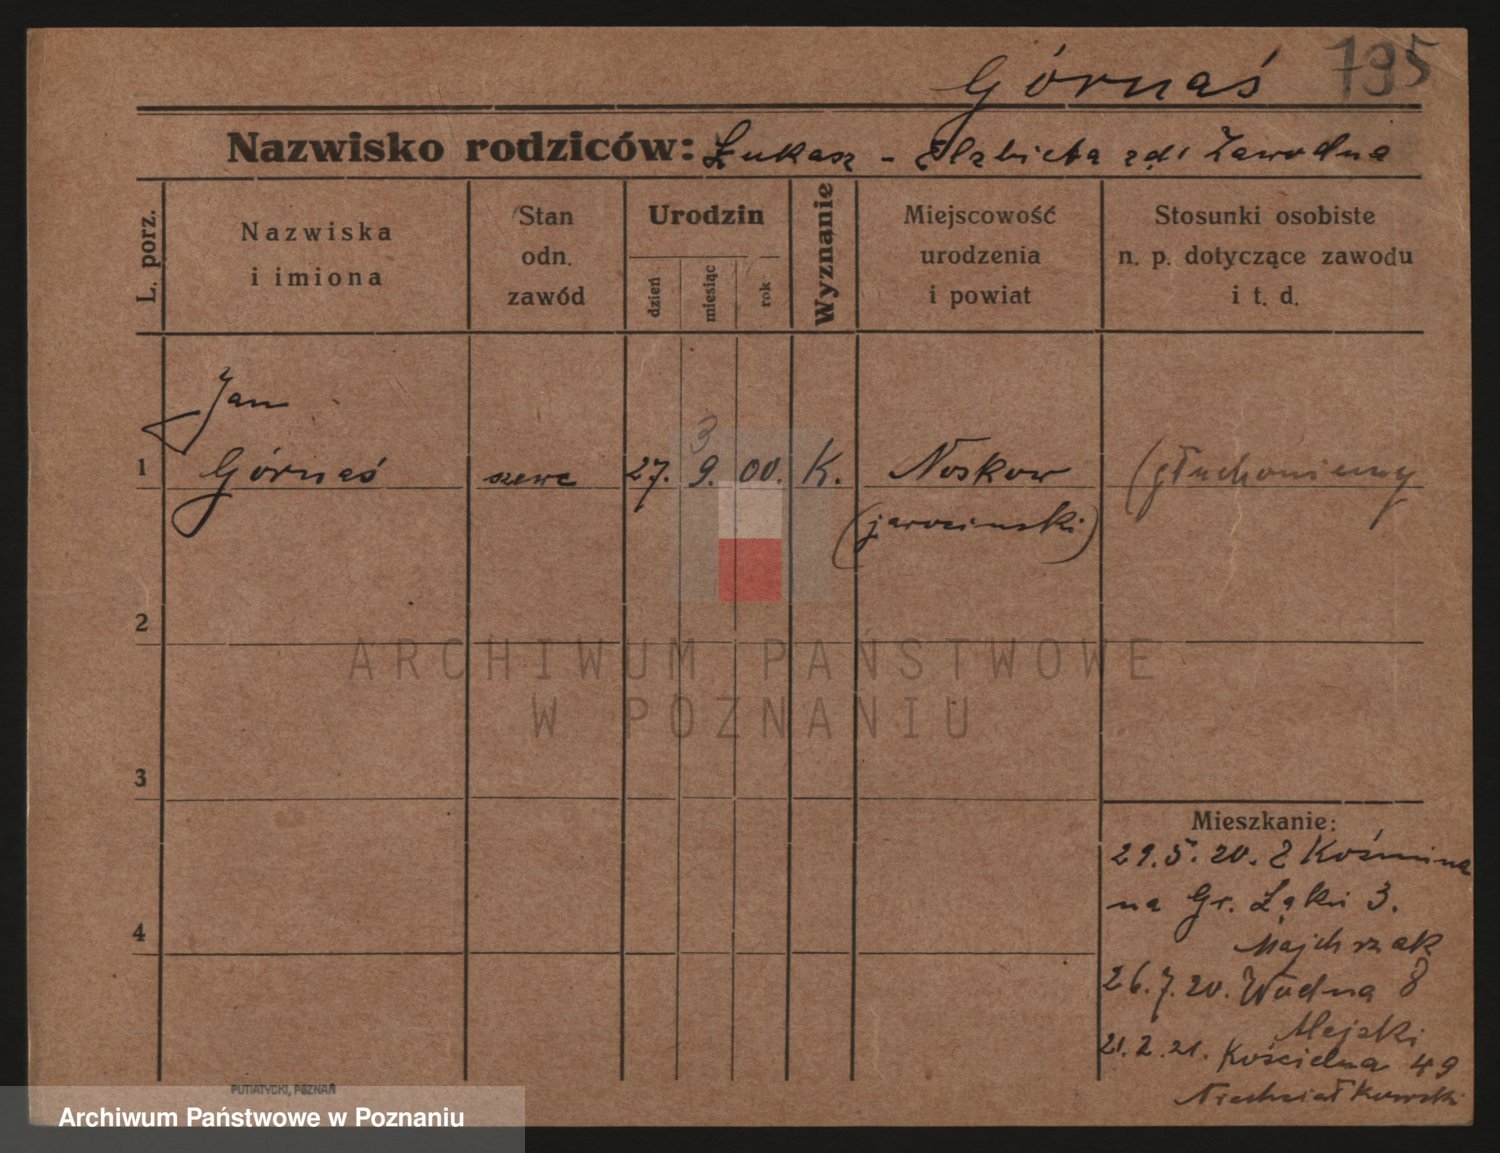 Górnaś 795
Nazwisko rodziców: Łukasz - Elzbieta zd. Zawodna
L. porz.
Nazwiska
i imiona
Stan
odn.
zawód
Urodzin
dzień
miesiąc
rok
Wyznanie
Miejscowość
urodzenia
i powiat
Stosunki osobiste
n. p. dotyczące zawodu
i t. d.
Jan
3
1 Górnaś szewc 27. 9. 00. K. Noskow (głuchoniemy
(jarocinski)
2
3
4
Mieszkanie:
29.5.20. z Koźmina
na Gr. Łąki 3.
Majchrzak
26.7.20. Wodna 8
Alejski
21.2.21. Kościelna 49
Niedziałkowski
ARCHIWUM PAŃSTWOWE
W POZNANIU
PUTIATYCKI, POZNAŃ
Archiwum Państwowe w Poznaniu